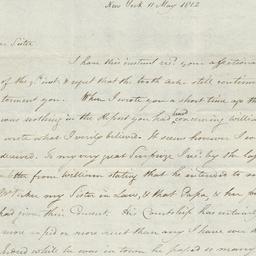 New York 11 May 1812
Sister
I have this instant rec'd your affectiona
of the 9th inst. & regret that the tooth ach still continu
torment you. When I wrote you a short time ago th
was nothing in the Report you had heard concerning Willia
wrote what I verily believed. It seems however I w
deceived. To my very great Surprize I rec'd by the
letter from William stating that he intended to
my Sister in Law, & that Papa, & her
had given their Consent. His Courtship has certainly
more rapid or more secret than any I have ever
Indeed while he was in town he paid so many